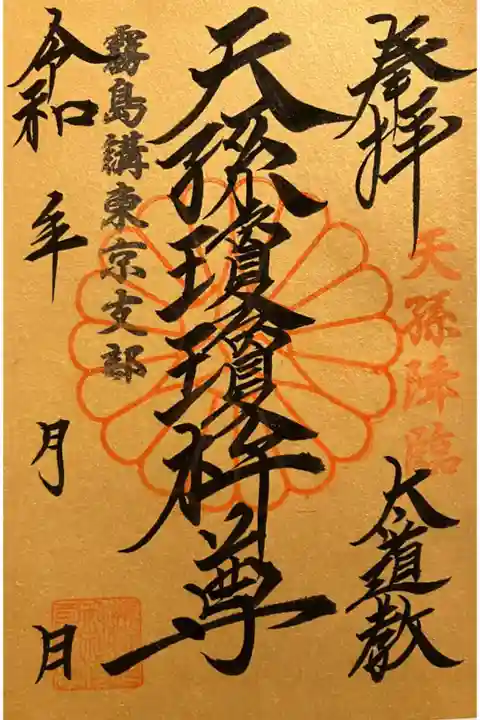 奉拝
天孫降臨
大道教
天孫瓊瓊杵尊
霧島講東京支部
令和 年 月 日